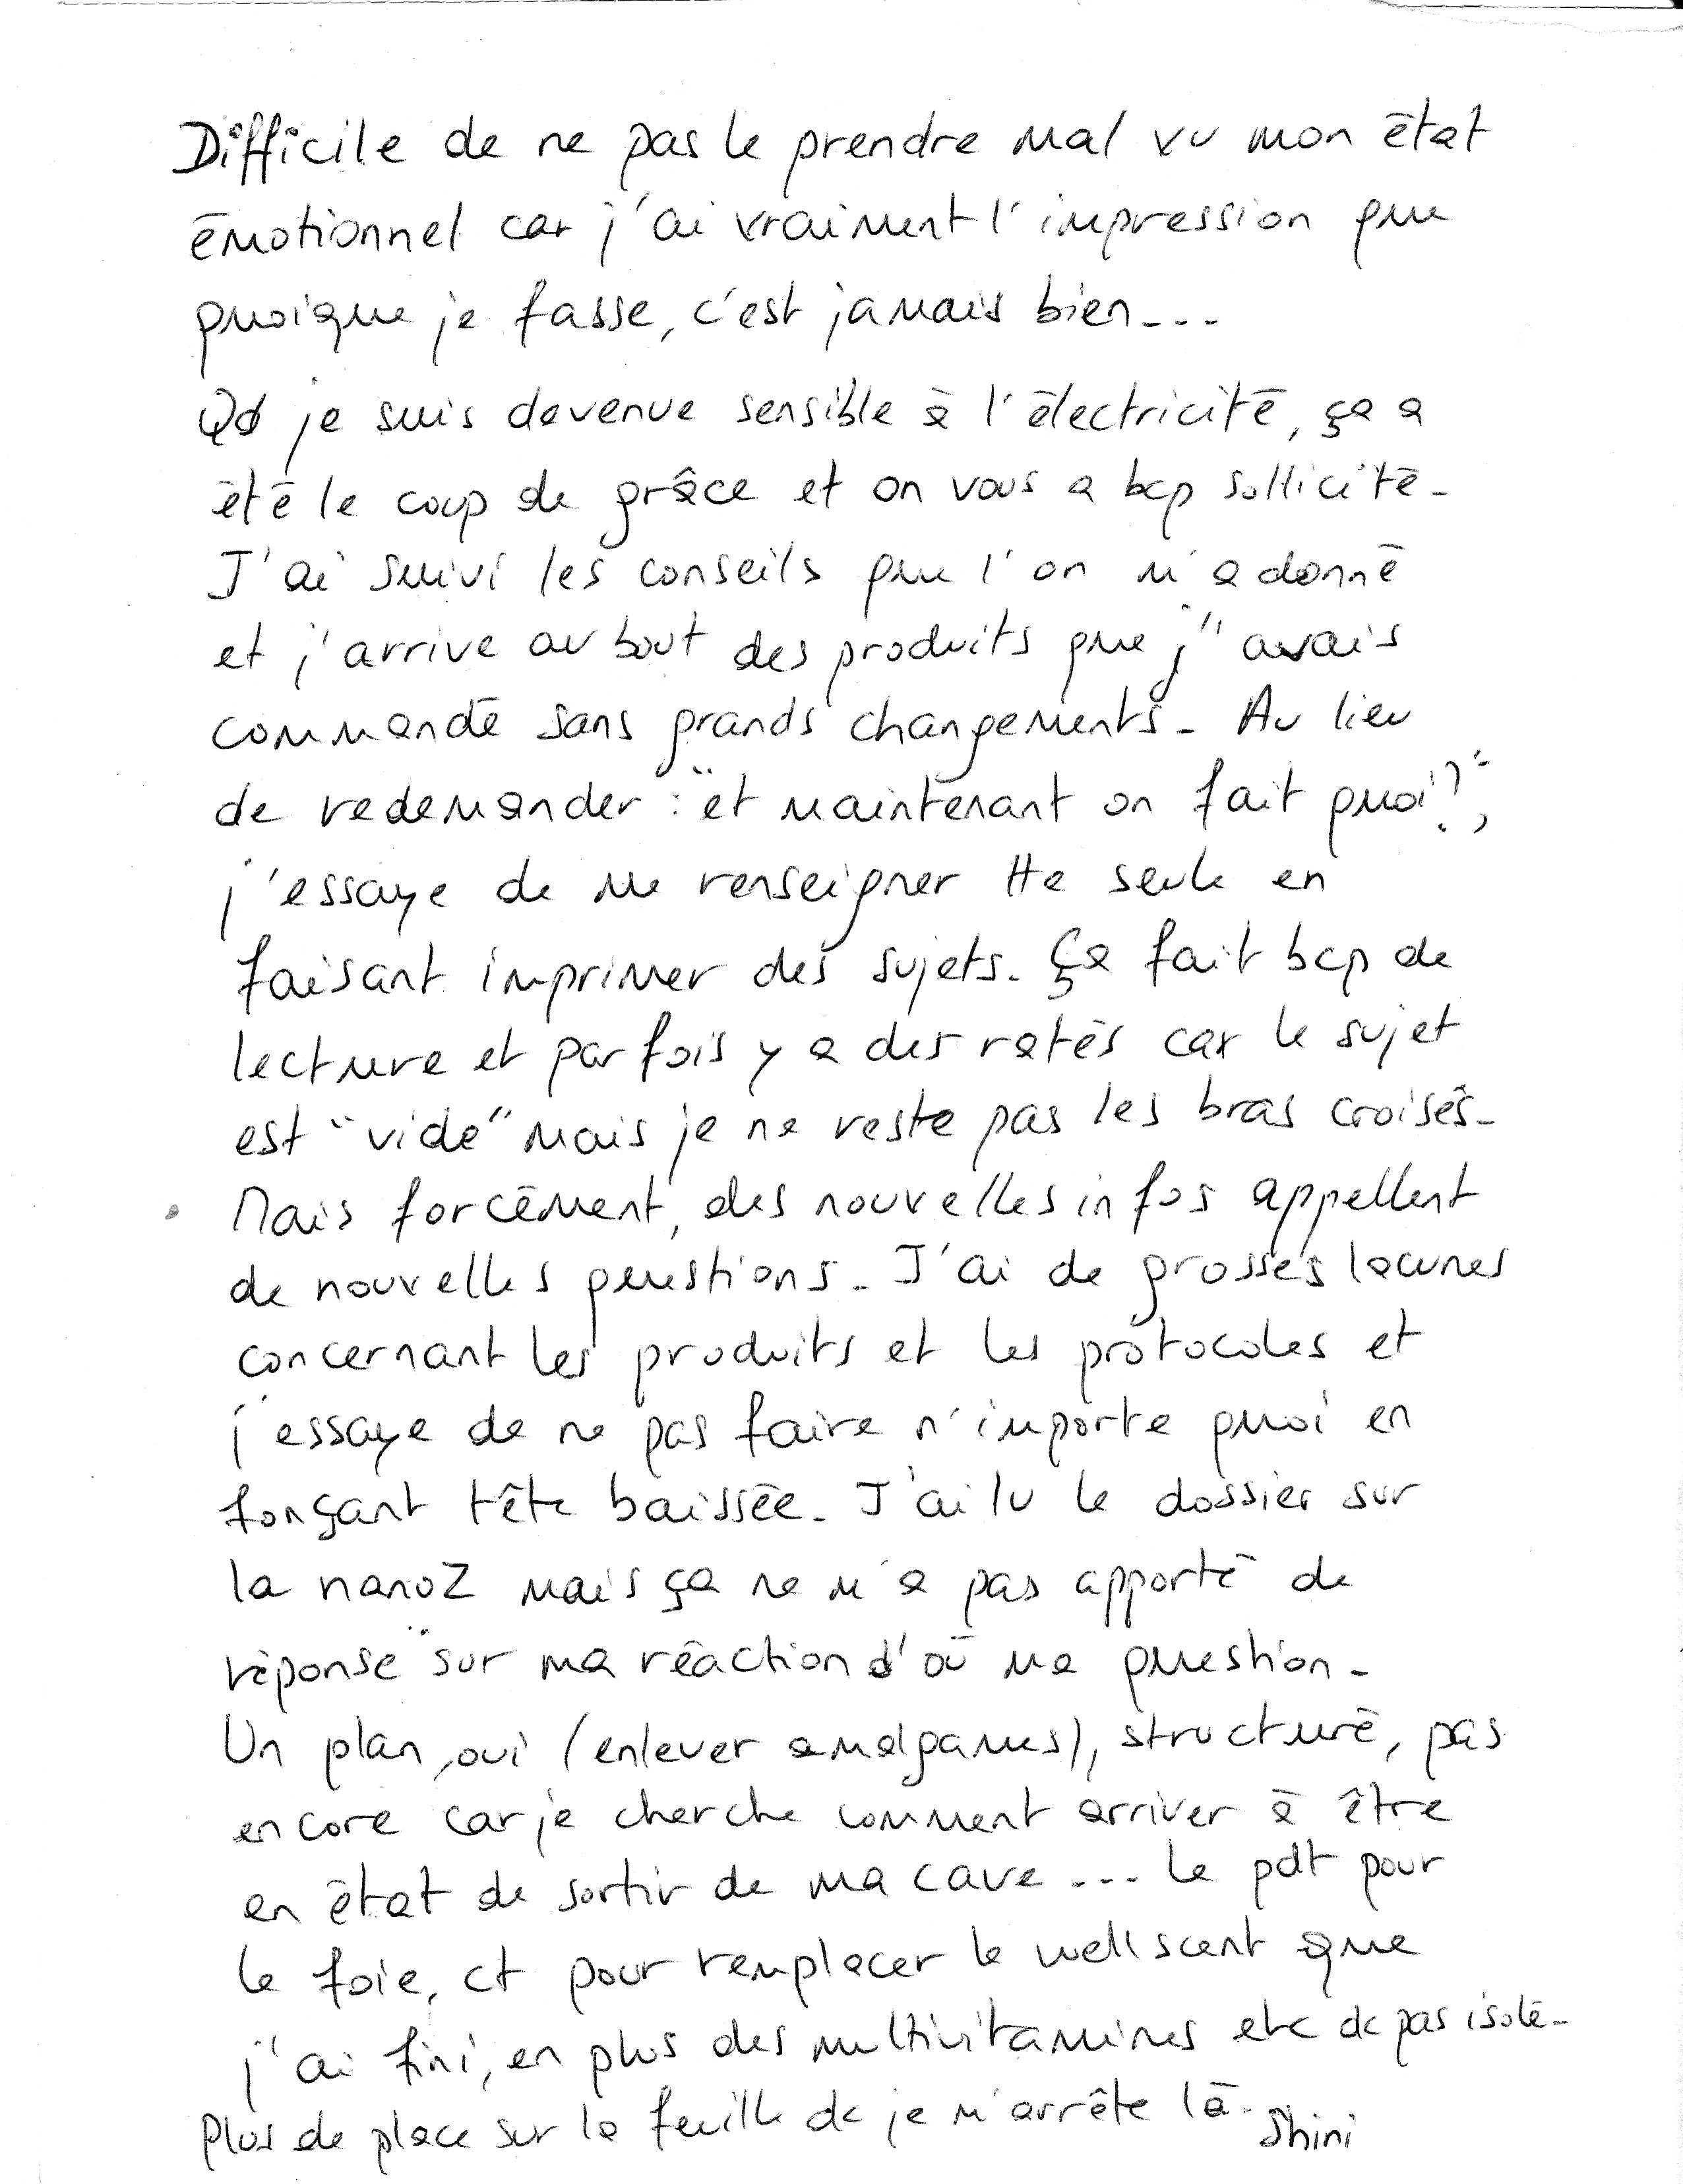 Difficile de ne pas le prendre mal vu mon état
émotionnel car j'ai vraiment l'impression que
quoique je fasse, c'est jamais bien...
Qd je suis devenue sensible à l'électricité, ça a
été le coup de grâce et on vous a bcp sollicité.
J'ai suivi les conseils que l'on m'a donné
et j'arrive au bout des produits que j'avais
commandé sans grands changements. Au lieu
de redemander : "et maintenant on fait quoi?",
j'essaye de me renseigner tte seule en
faisant imprimer des sujets. Ça fait bcp de
lecture et parfois y a des ratés car le sujet
est "vide" mais je ne reste pas les bras croisés.
Mais forcément, des nouvelles infos appellent
de nouvelles questions. J'ai de grosses lacunes
concernant les produits et les protocoles et
j'essaye de ne pas faire n'importe quoi en
fonçant tête baissée. J'ai lu le dossier sur
la nanoZ mais ça ne m'a pas apporté de
"réponse" sur ma réaction d'où ma question.
Un plan, oui (enlever amalgames), structuré, pas
encore car je cherche comment arriver à être
en état de sortir de ma cave... Le pdt pour
le foie, ct pour remplacer le wellscent que
j'ai fini, en plus des multivitamines etc dc pas isolé.
Plus de place sur la feuille dc je m'arrête là. Shini